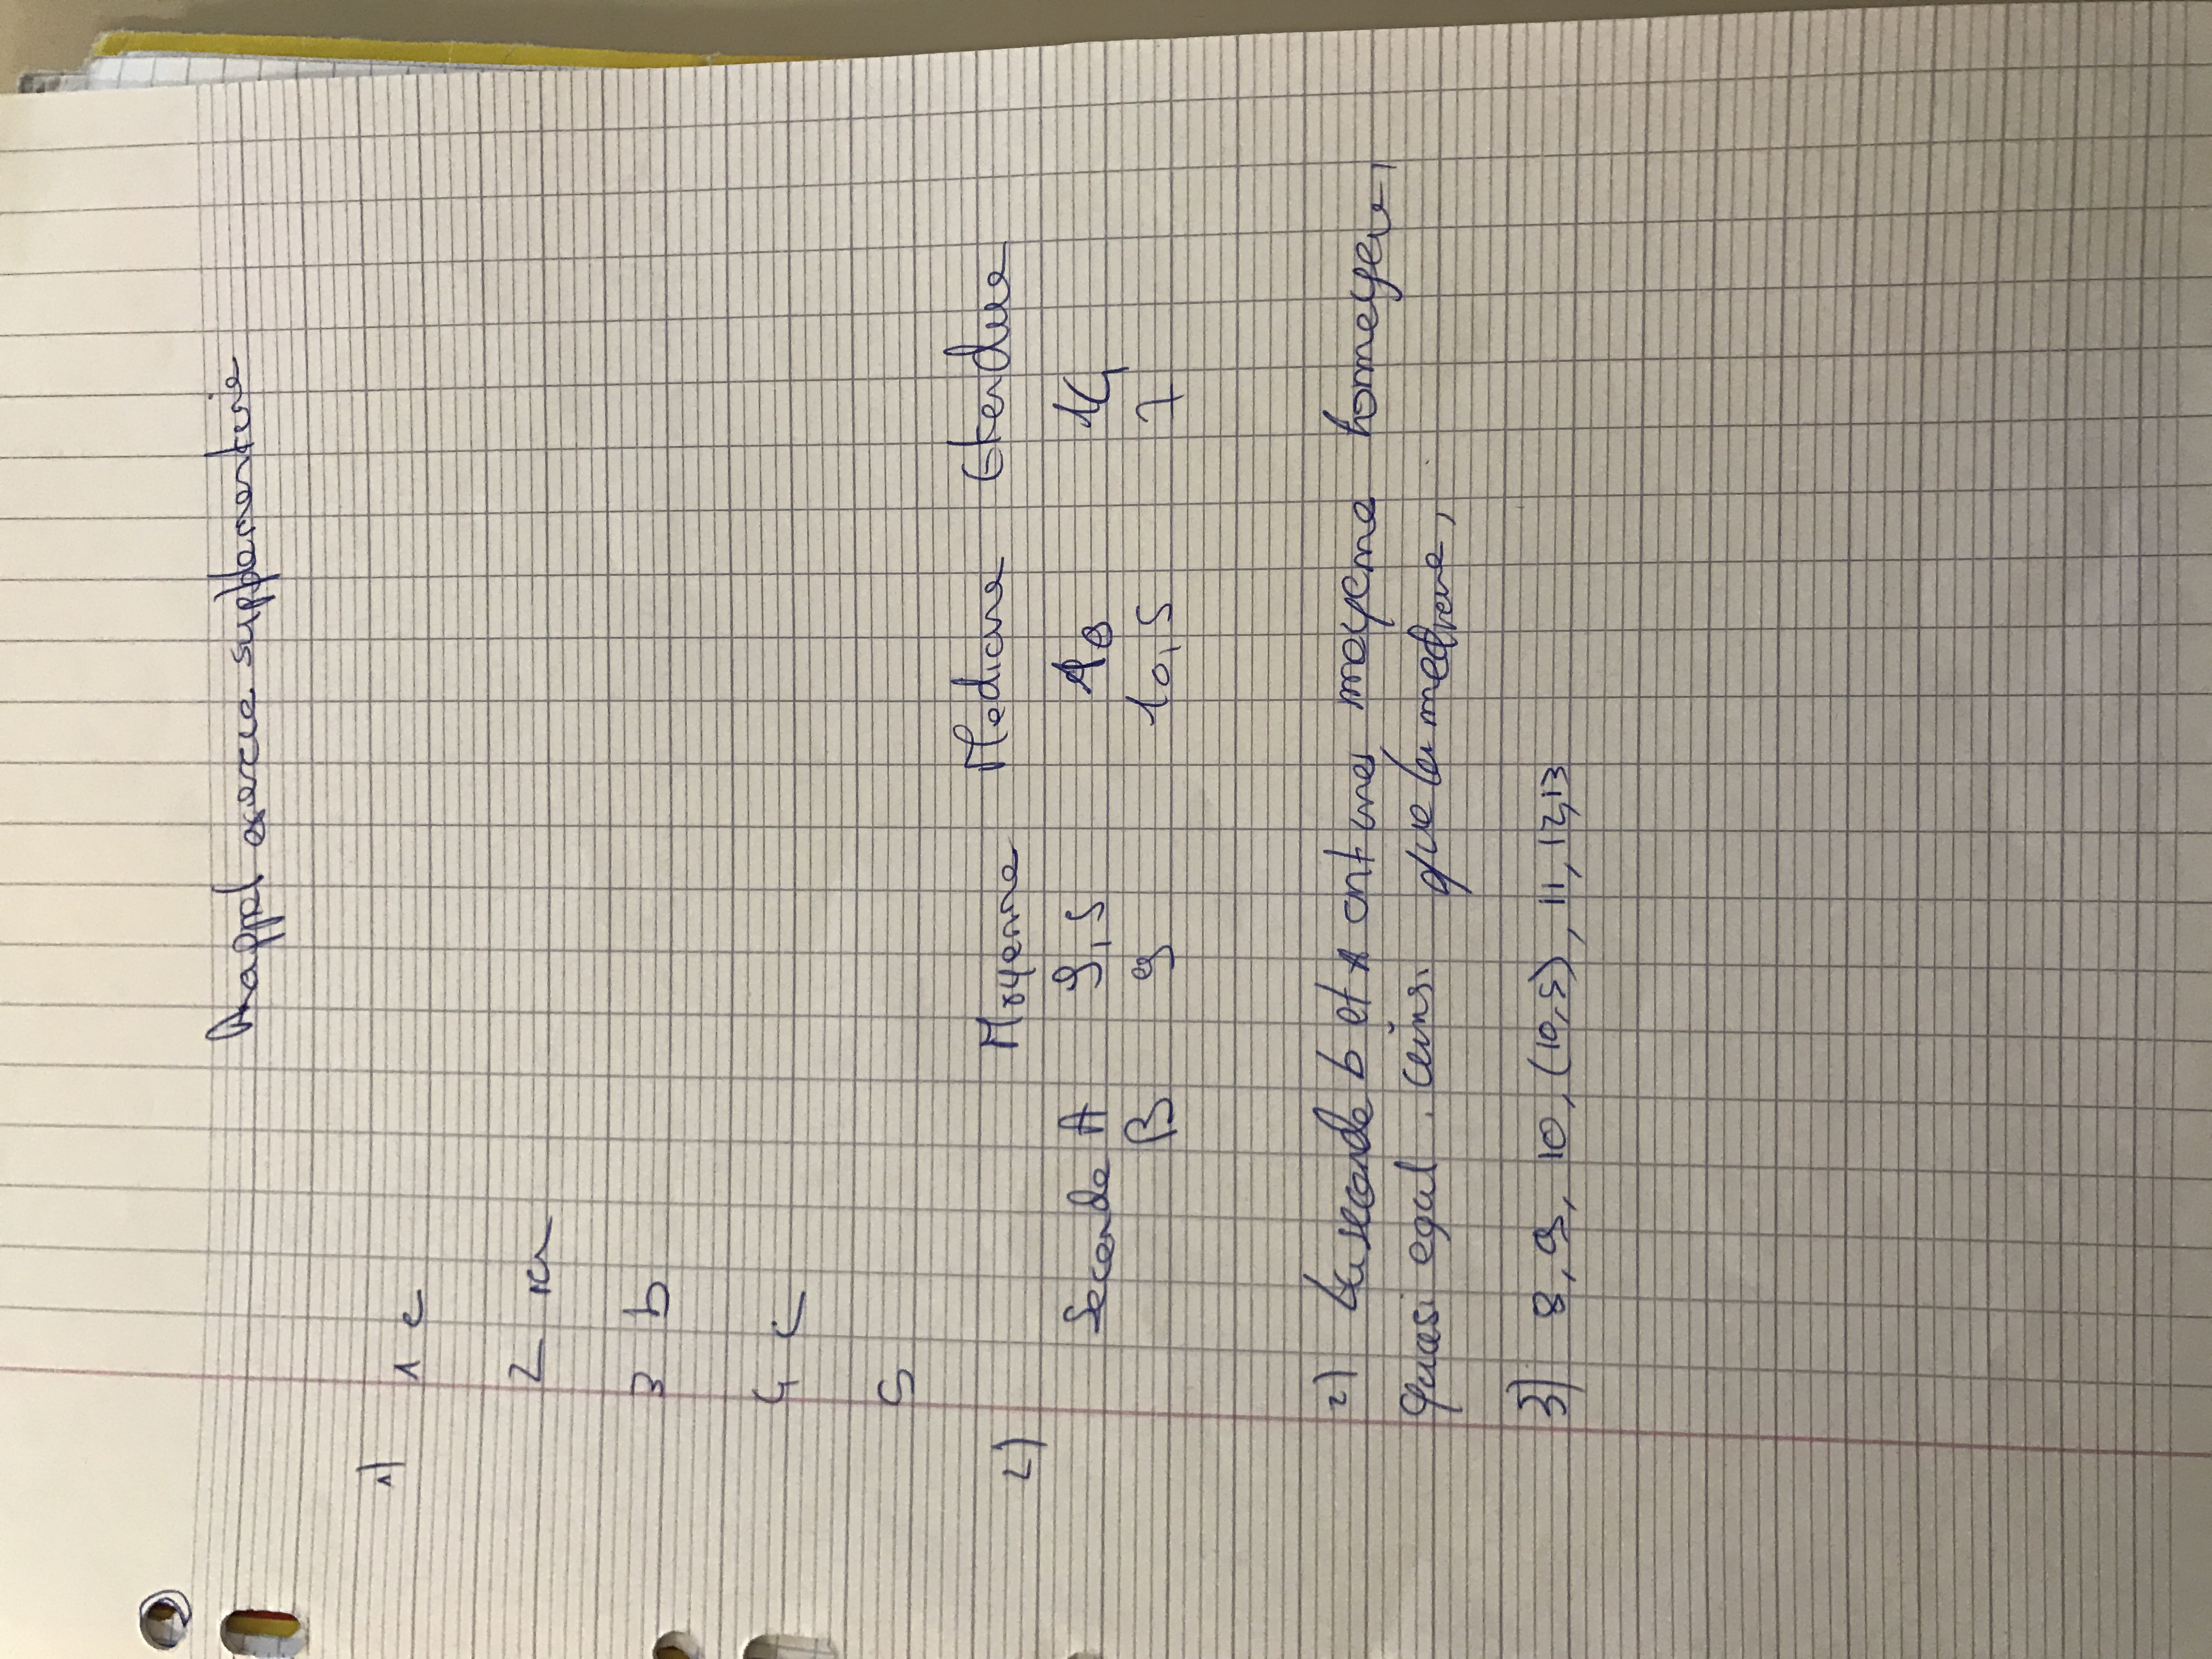 Rappel exercice supplementaire
1)
1 c
2 a
3 b
4 c
5
2) Moyenne Mediane Etendue
Seconde A 9,5 10 14
B 9 10,5 7
2) La seconde b et A ont une moyenne homogene,
quasi egal. ainsi que la mediane,
3) 8, 9, 10, (10,5), 11, 12, 13